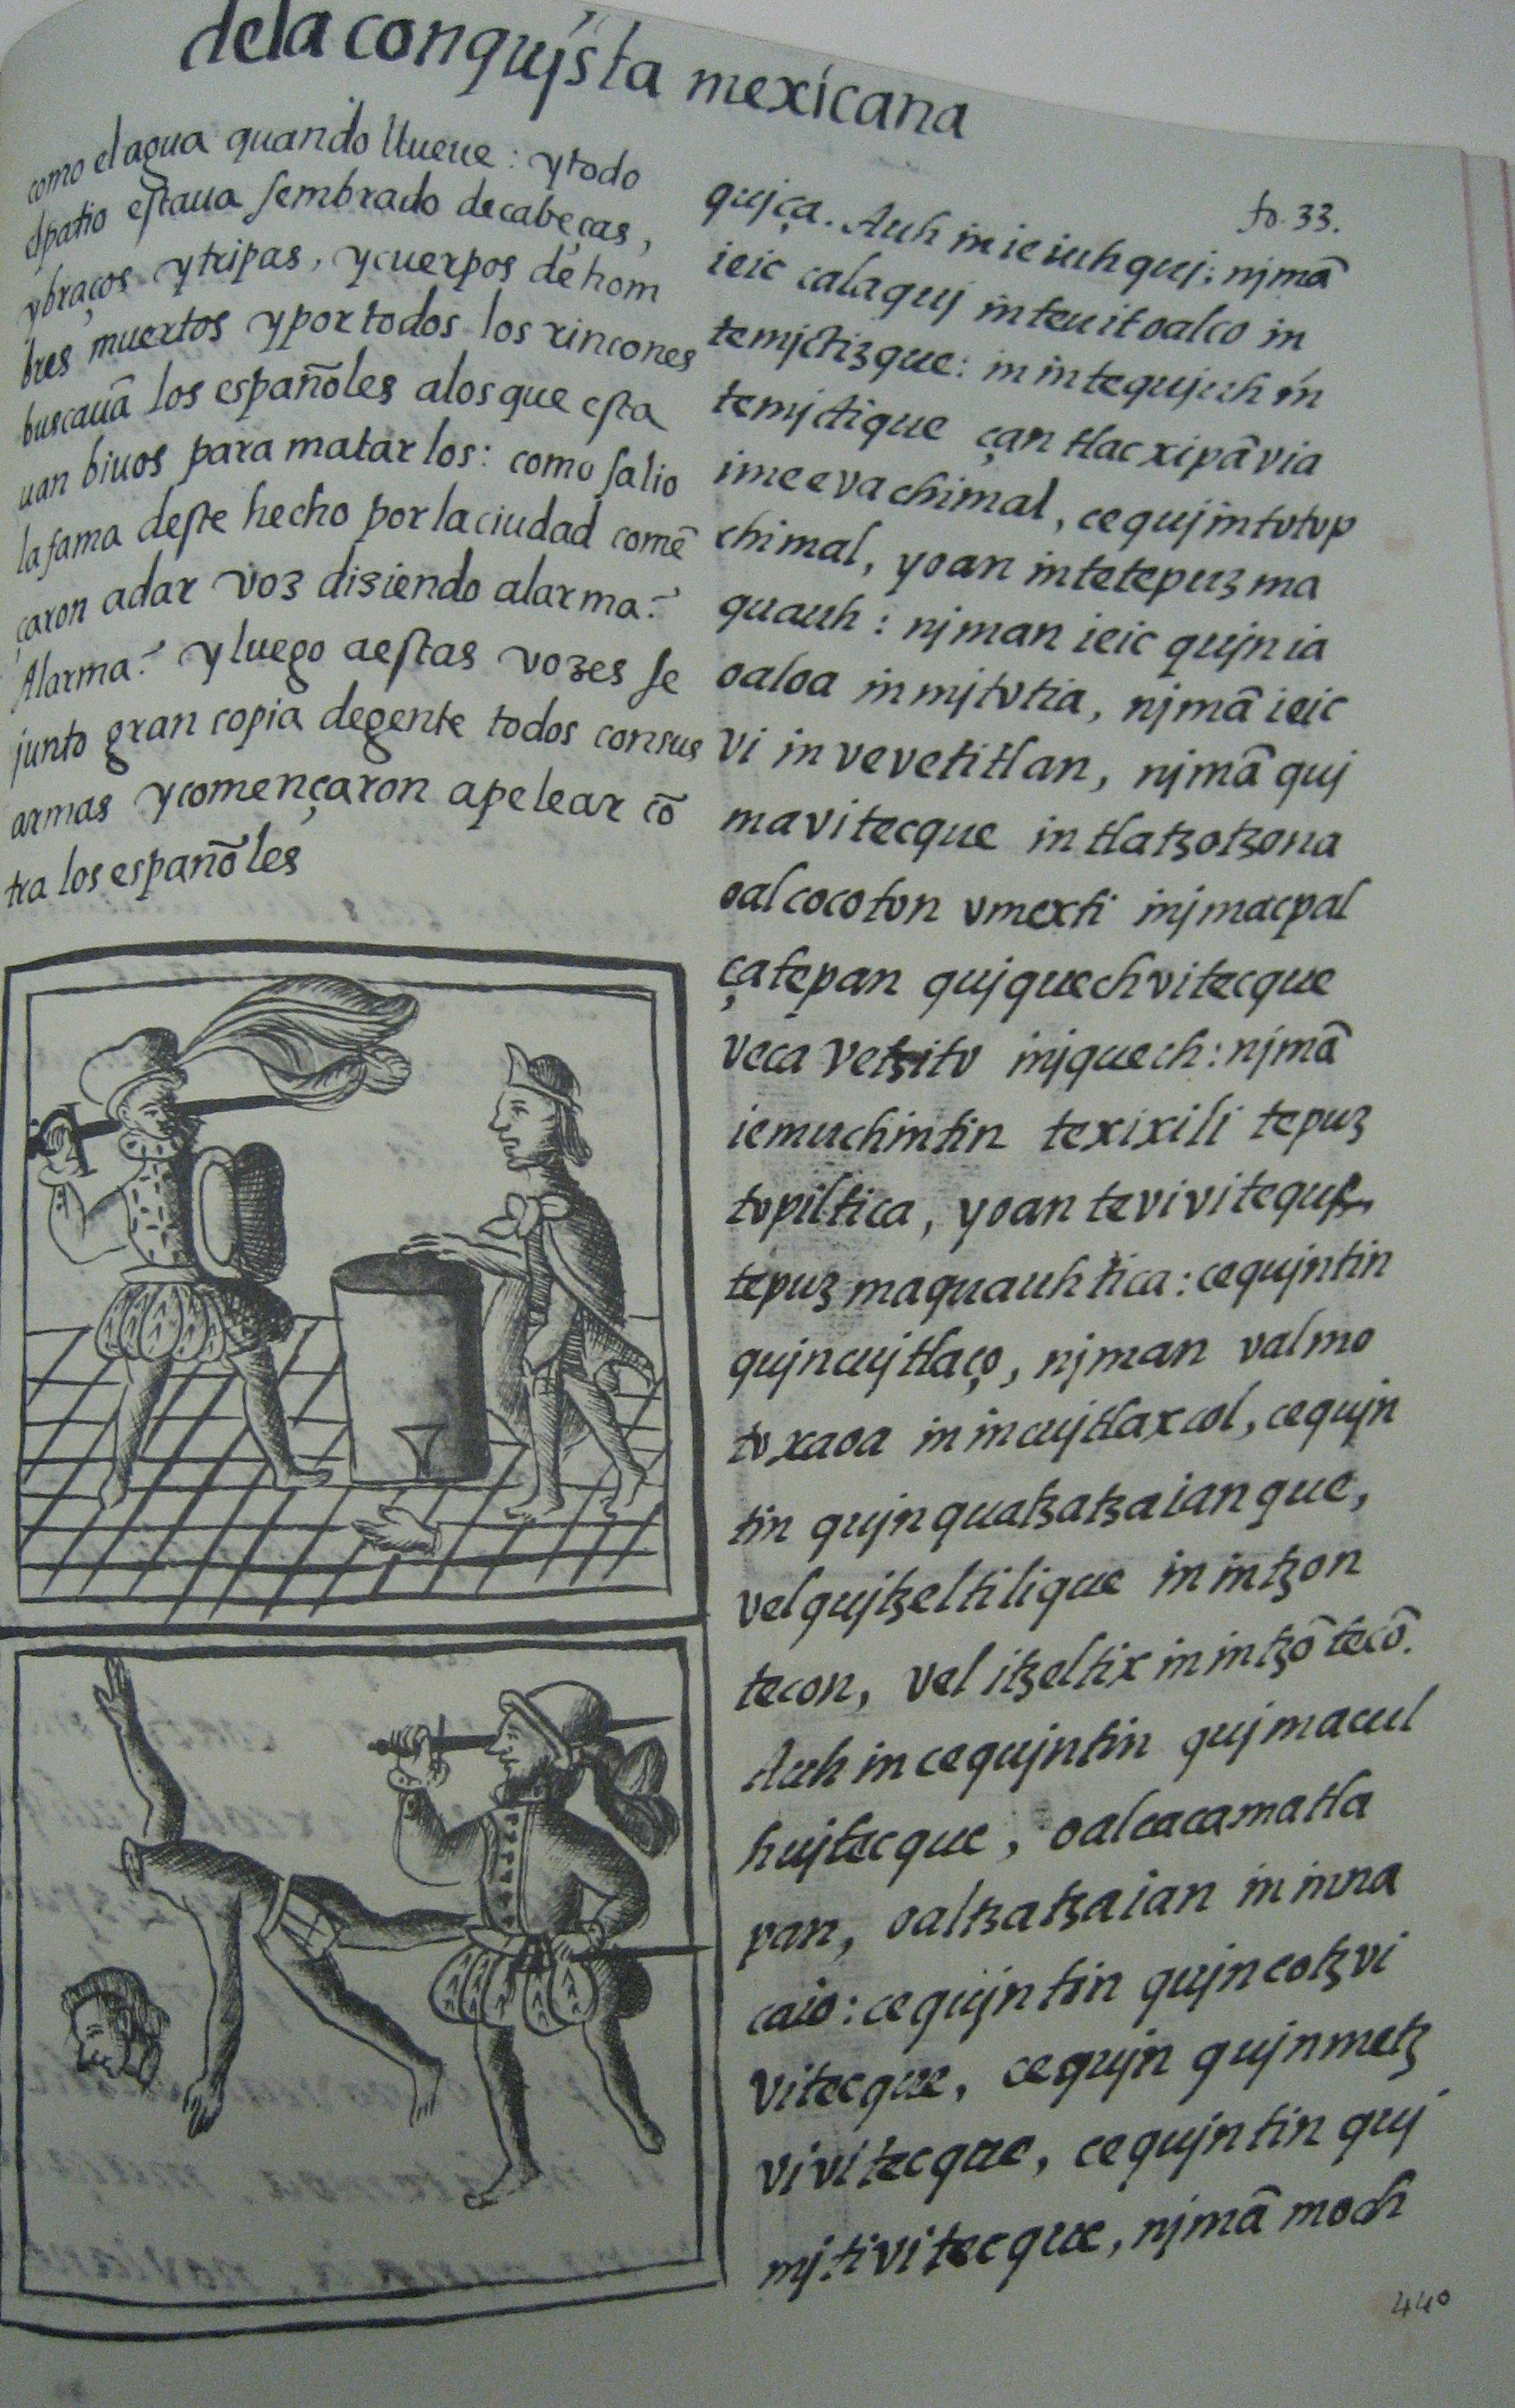 dela conqujsta mexicana
como el agua quando llueue: y todo
el patio estaua sembrado de cabeças,
y braços y tripas, y cuerpos de hom
bres muertos y por todos los rincones
buscauã los españoles alos que esta
uan biuos para matarlos: como salio
la fama deste hecho por la ciudad comẽ
çaron adar voz diziendo alarma.
Alarma. y luego aestas vozes se
junto gran copia degente todos consus
armas y començaron apelear cõ
tra los españoles
fo. 33.
qujça. Auh in ie iuhquj: njmã
ieic calaquj in teuitoalco in
temjctizque: in intequjuh in
temjctique çan tlacxipãvia
imeevachimal, cequj intotop
chimal, yoan intetepuzma
quauh: njman ieic qujnia
oaloa in mjtotia, njmã ieic
vi in vevetitlan, njmã quj
mavitecque in tlatzotzona
oalcocoton vmexti injmacpal
çatepan qujquechvitecque
veca vetzito injquech: njmã
iemuchintin texixili tepuz
topiltica, yoan tevivitequj
tepuzmaquauhtica: cequjntin
qujncujtlaço, njman valmo
toxaoa in incujtlaxcol, cequjn
tin qujnquatzatzaianque,
velqujtzeltilique in intzon
tecon, vel itzeltix in intzõtecõ.
Auh in cequjntin qujmacul
hujtecque, oalcacamatla
pan, oaltzatzaian in inna
caio: cequjntin qujncotzvi
vitecque, cequjn qujnmetz
vivitecque, cequjntin quj
mjtivitecque, njmã moch
440